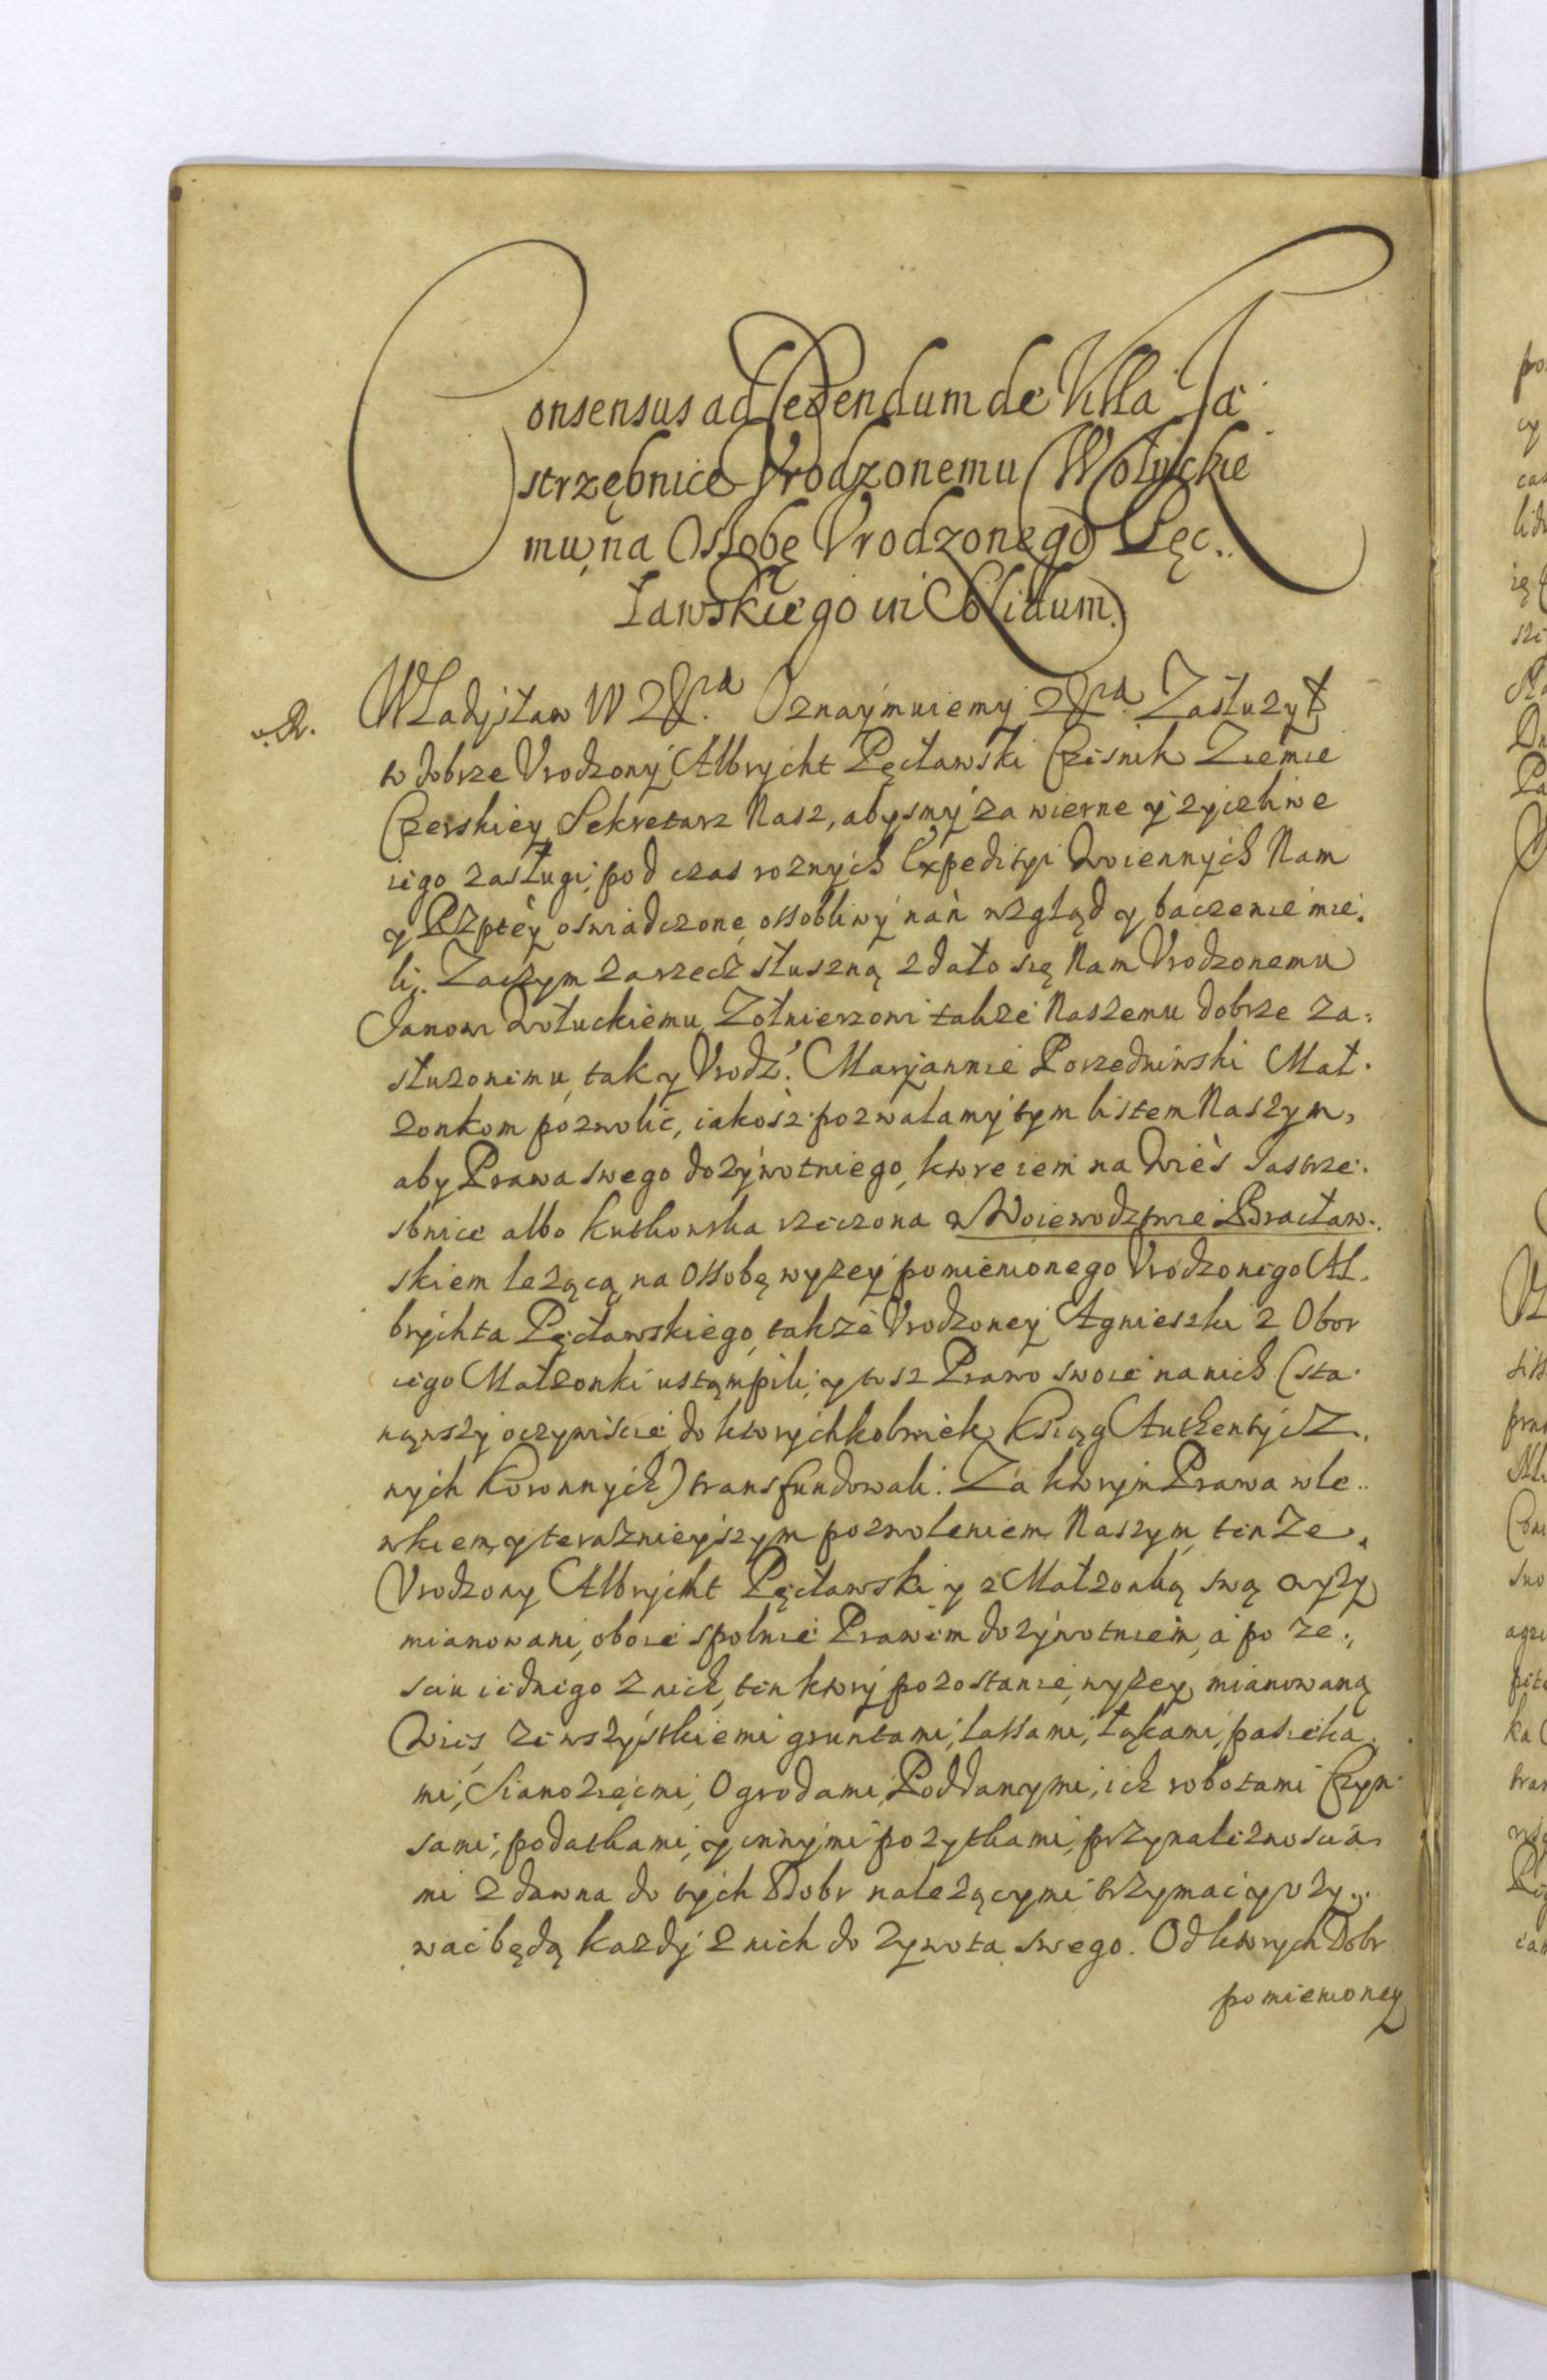 Consensus ad cedendum de Villa Ja
strzębnice Vrodzonemu Wołuckie
mu, na Ossobę Vrodzonego Pęc..
ławskiego in Solidum.
Władysław IV etc. Oznaymuiemy etc. Zasłużył
to dobrze Vrodzony Albrycht Pęcławski Cześnik Ziemie
Czerskiey Sekretarz Nasz, abysmy za wierne y zyczliwe
iego zasługi, pod czas roznych Expedityi Woiennych Nam
y Rzptey oswiadczone, ossobliwy nań wzgląd y baczenie mie.
li. Zaczym za rzecz słuszną zdało się Nam Vrodzonemu
Janowi Wołuckiemu, Zołnierzowi także Naszemu dobrze za:
słuzonemu, tak y Vrodz. Maryannie Porzedninski Mał.
zonkom pozwolic, iakosz pozwalamy tym listem Naszym,
aby Prawa swego dozywotniego, ktore iem na Wieś Jastrze.
sbnice albo Kutkowska rzeczona w Woiewodztwie Bracław.
skiem lezącą, na Ossobę wyzey pomienionego Vrodzonego Al.
brychta Pęcławskiego, także Vrodzoney Agnieszki z Obor
iego Małzonki ustąmpili, y tosz Prawo swoie na nich (sta.
nąwszy oczywiscie, do ktorychkolwiek Ksiąg Authentycz.
nych Koronnych) transfundowali. Za ktorym Prawa wle..
wkiem, y terazniejszym pozwoleniem Naszym, tenze,
Vrodzony Albrycht Pęcławski y z Małzonką swą wyzy
mianowani, oboie spolnie Prawem dozywotniem, a po ze.,
sciu iednego z nich, ten ktory pozostanie, wyzey mianowaną
Wies ze wszystkiemi gruntami, lassami, łąkami, pasieka.
mi, Sianozęcmi, Ogrodami, Poddanymi, ich robotami Czyn.
sami, podatkami, y innymi pozytkami, przynaleznoscia
mi zdawna do tych Dobr nalezącymi trzymac y vzy..
wac będą kazdy z nich do zywota swego. Od ktorych Dobr
pomienioney